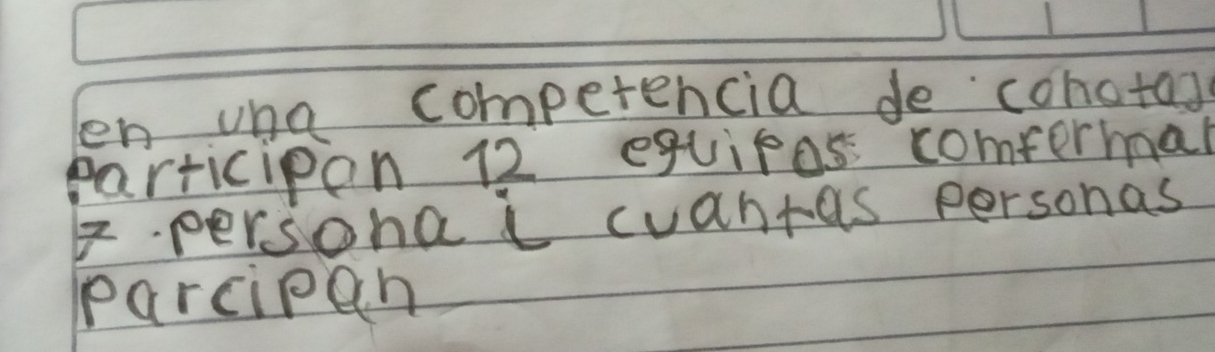 en una competencia de
Participan 12 equipos
7 persona ¿ cuantas personas
parcipan